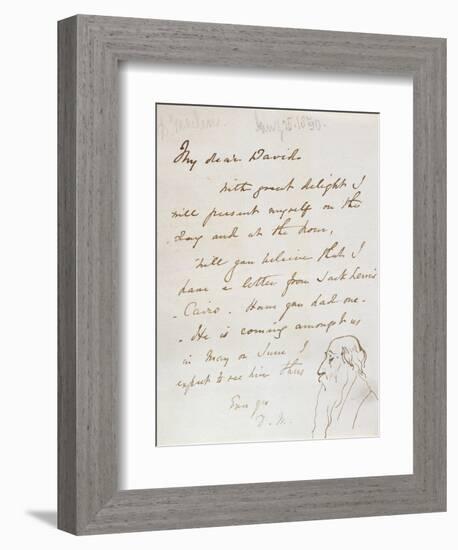 My dear David
With great delight I
will present myself on the
day and at the hour,
Will you believe that I
have a letter from Jack Lewis
- Cairo. Have you had one.
- He is coming amongst us
in May or June I
expect to see him thus
Ever yrs
D. M.